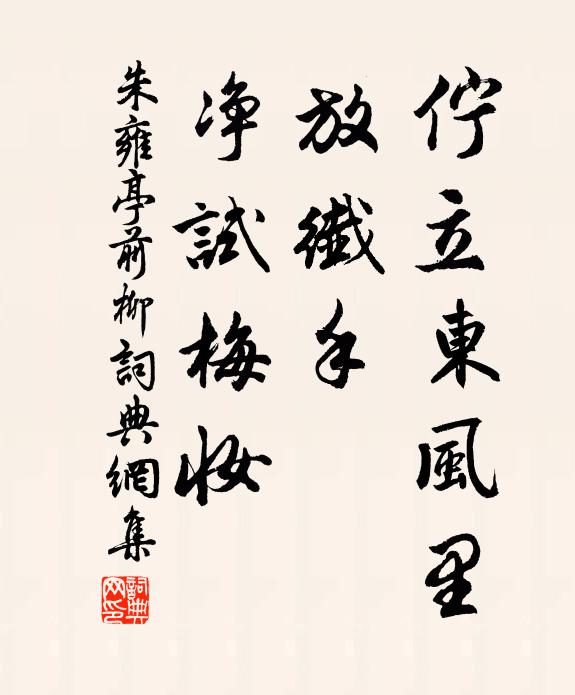 佇立東風里
放纖手
净試梅妝
朱雍亭前柳詞典網集
詞典網印